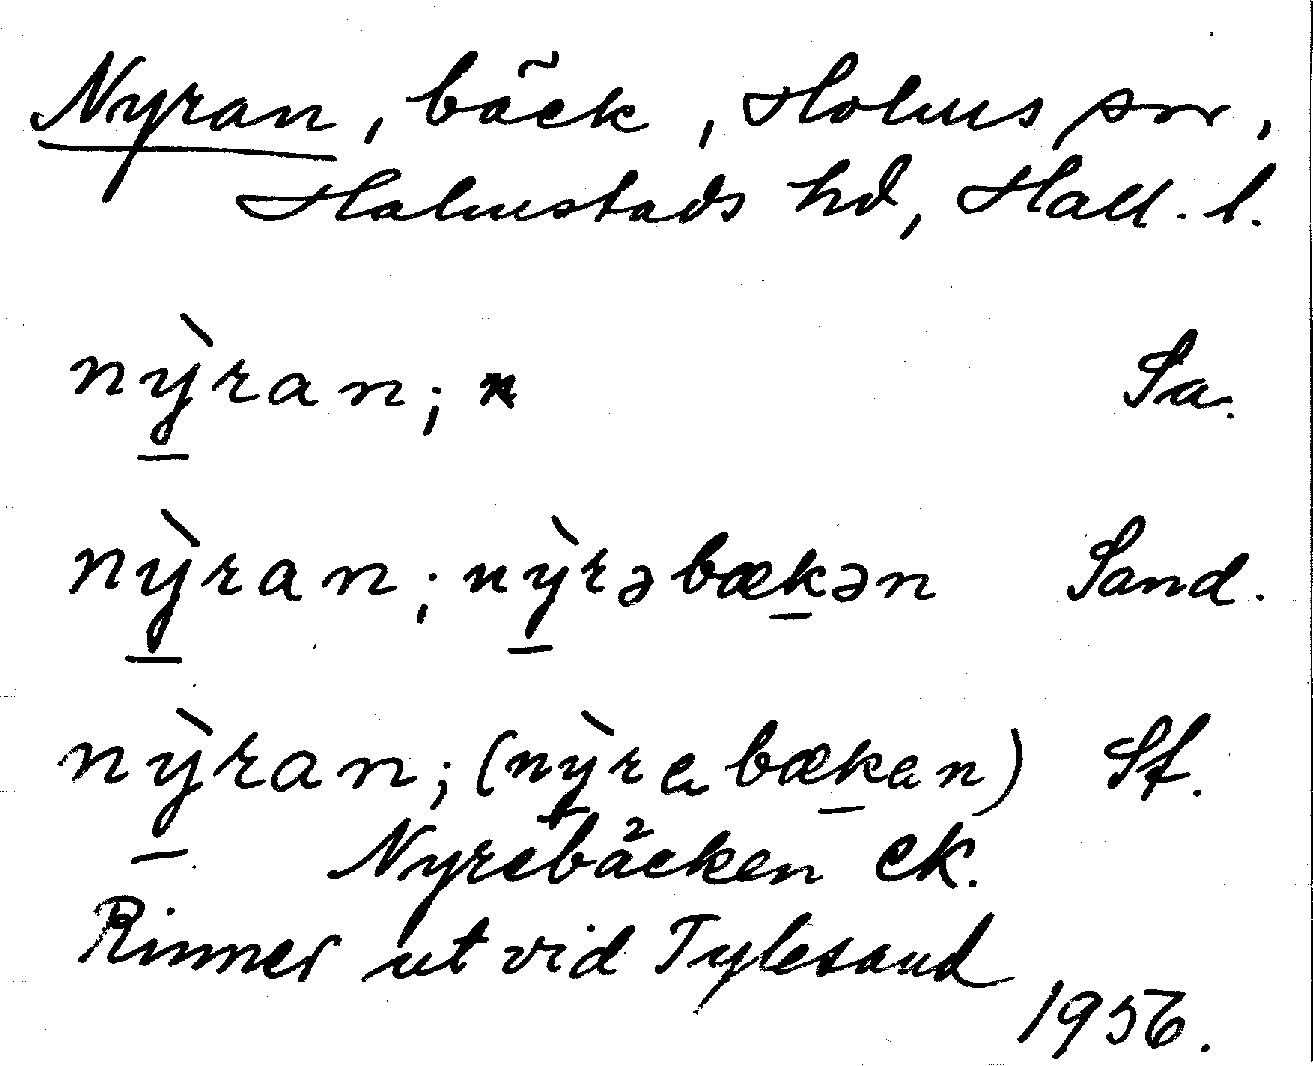 Nyran, bäck, Holms sn,
Halmstads hd, Hall. l.
nỳran; Sa.
nỳran; nỳrəbækən Sand.
nỳran; (nỳrebæken) Sf.
Nyrebäcken ek.
Rinner ut vid Tylesand
1956.